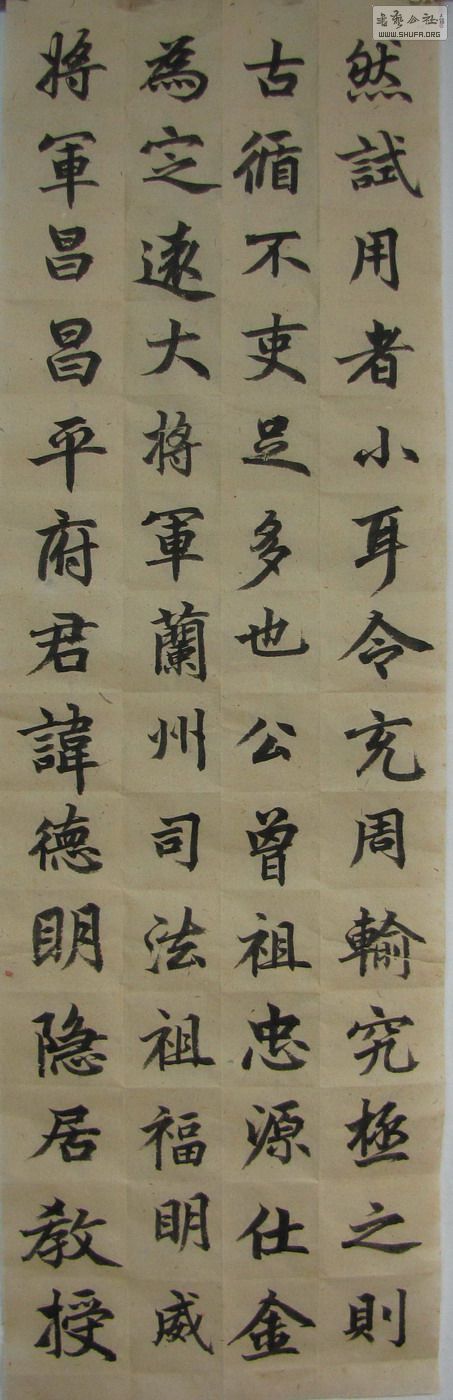 然試用者小耳令充周輸究極之則
古循不吏足多也公曾祖忠源仕金
為定遠大將軍蘭州司法祖福眀威
將軍昌昌平府君諱德眀隐居教授
書藝公社
WWW.SHUFA.ORG